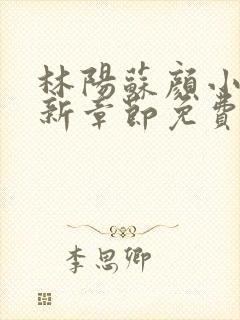 林陽蘇顏小
新章節免費
李思卿